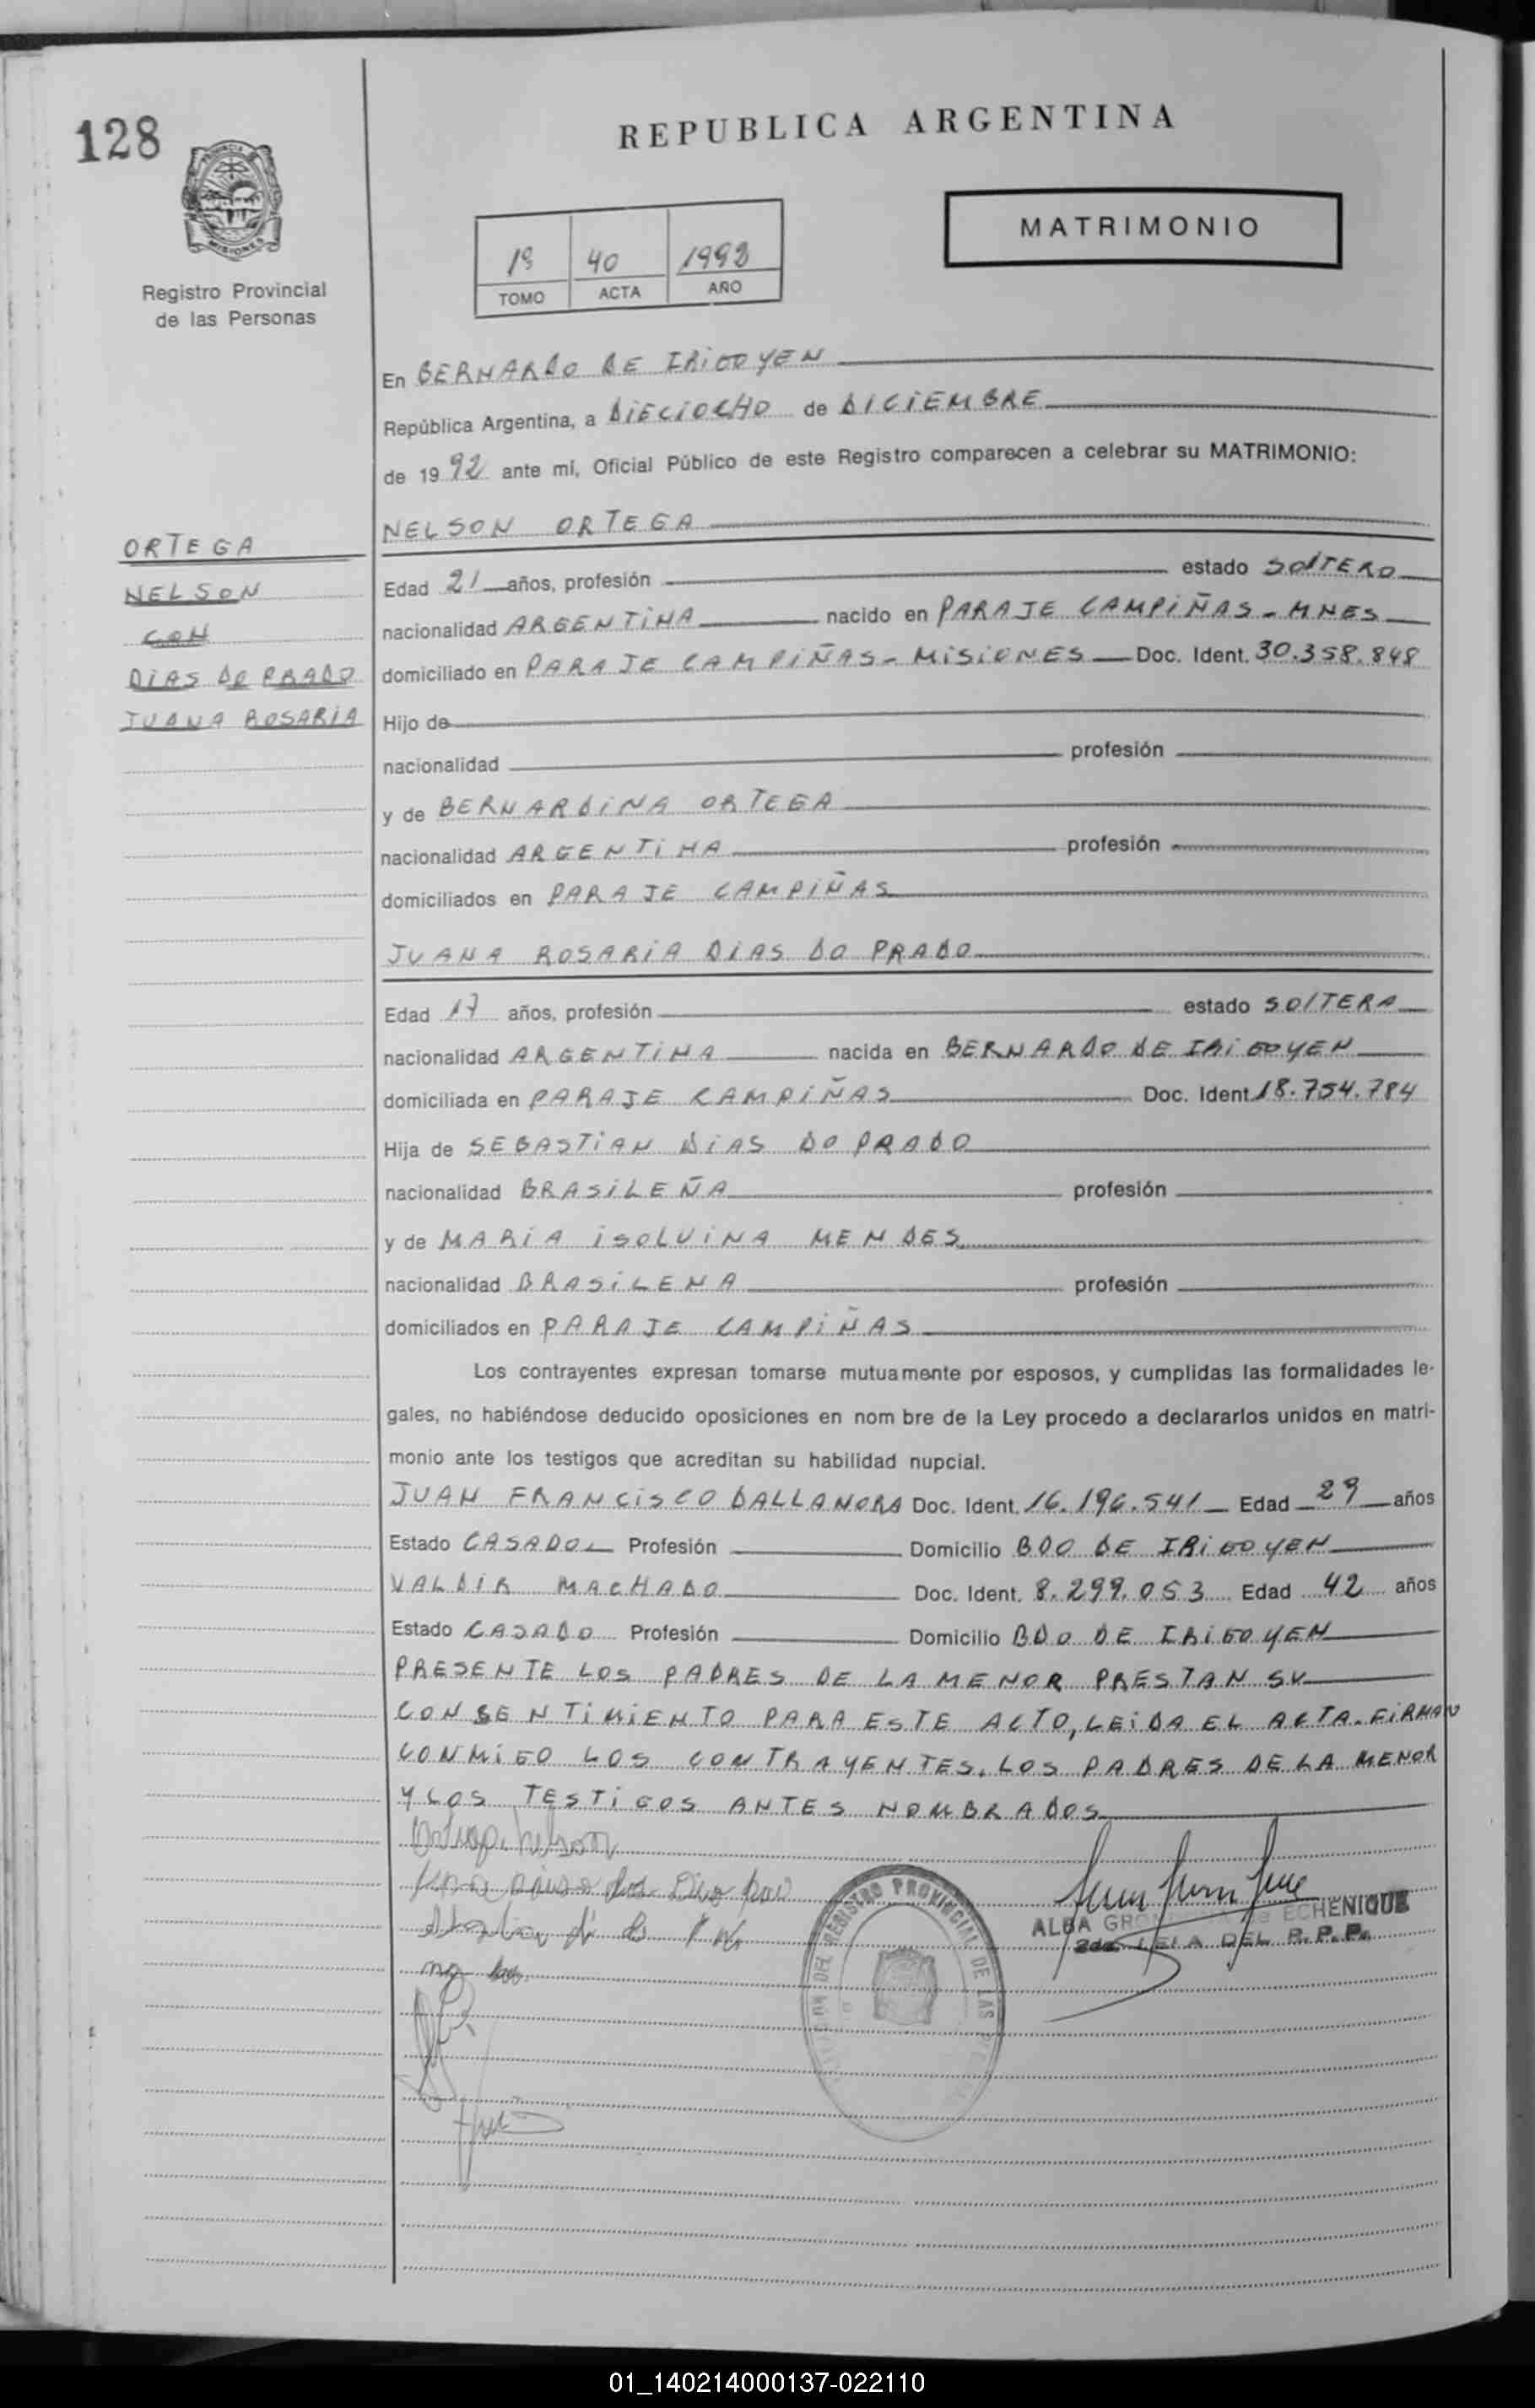 128
REPUBLICA ARGENTINA
PROVINCIA
MISIONES
Registro Provincial
de las Personas
1º 40 1992
TOMO ACTA AÑO
MATRIMONIO
En BERNARDO DE IRIGOYEN
República Argentina, a DIECIOCHO de DICIEMBRE
de 1992 ante mí, Oficial Público de este Registro comparecen a celebrar su MATRIMONIO:
ORTEGA
NELSON
CON
DIAS DO PRADO
JUANA ROSARIA
NELSON ORTEGA
Edad 21 años, profesión estado SOLTERO
nacionalidad ARGENTINA nacido en PARAJE CAMPIÑAS - MNES
domiciliado en PARAJE CAMPIÑAS - MISIONES Doc. Ident. 30.358.848
Hijo de
nacionalidad profesión
y de BERNARDINA ORTEGA
nacionalidad ARGENTINA profesión
domiciliados en PARAJE CAMPIÑAS
JUANA ROSARIA DIAS DO PRADO
Edad 17 años, profesión estado SOLTERA
nacionalidad ARGENTINA nacida en BERNARDO DE IRIGOYEN
domiciliada en PARAJE CAMPIÑAS Doc. Ident. 18.754.784
Hija de SEBASTIAN DIAS DO PRADO
nacionalidad BRASILEÑA profesión
y de MARIA ISOLVINA MENDES
nacionalidad BRASILENA profesión
domiciliados en PARAJE CAMPIÑAS
Los contrayentes expresan tomarse mutuamente por esposos, y cumplidas las formalidades le-
gales, no habiéndose deducido oposiciones en nom bre de la Ley procedo a declararlos unidos en matri-
monio ante los testigos que acreditan su habilidad nupcial.
JUAN FRANCISCO DALLANORA Doc. Ident. 16.196.541 Edad 29 años
Estado CASADO Profesión Domicilio BDO DE IRIGOYEN
VALDIR MACHADO Doc. Ident. 8.299.053 Edad 42 años
Estado CASADO Profesión Domicilio BDO DE IRIGOYEN
PRESENTE LOS PADRES DE LA MENOR PRESTAN SU
CONSENTIMIENTO PARA ESTE ACTO, LEIDA EL ACTA. FIRMAN
CONMIGO LOS CONTRAYENTES, LOS PADRES DE LA MENOR
Y LOS TESTIGOS ANTES NOMBRADOS
Ortega Nelson
REGISTRO PROVINCIAL DE LAS
ALBA ECHENIQUE
DEL R. P. P.
01_140214000137-022110